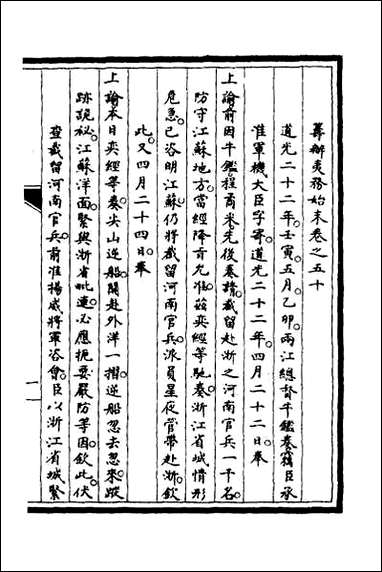 籌辦夷務始末卷之五十
道光二十二年壬寅五月乙卯。兩江總督牛鑑奏竊臣承
准軍機大臣字寄。道光二十二年四月二十二日。奉
上諭前因牛鑑程矞采先後奏請截留赴浙之河南官兵一千名。
防守江蘇地方。當經降旨允准茲奕經等馳奏浙江省城情形
危急。已咨明江蘇仍將截留河南官兵派員星夜管帶赴浙欽
此。又四月二十四日。奉
上諭本日奕經等奏尖山逆船開赴外洋一摺逆船忽去忽來蹤
跡詭秘。江蘇洋面緊與浙省毗連。必應扼要嚴防等因欽此。伏
查截留河南官兵。前准揚威將軍咨會。臣以浙江省城緊